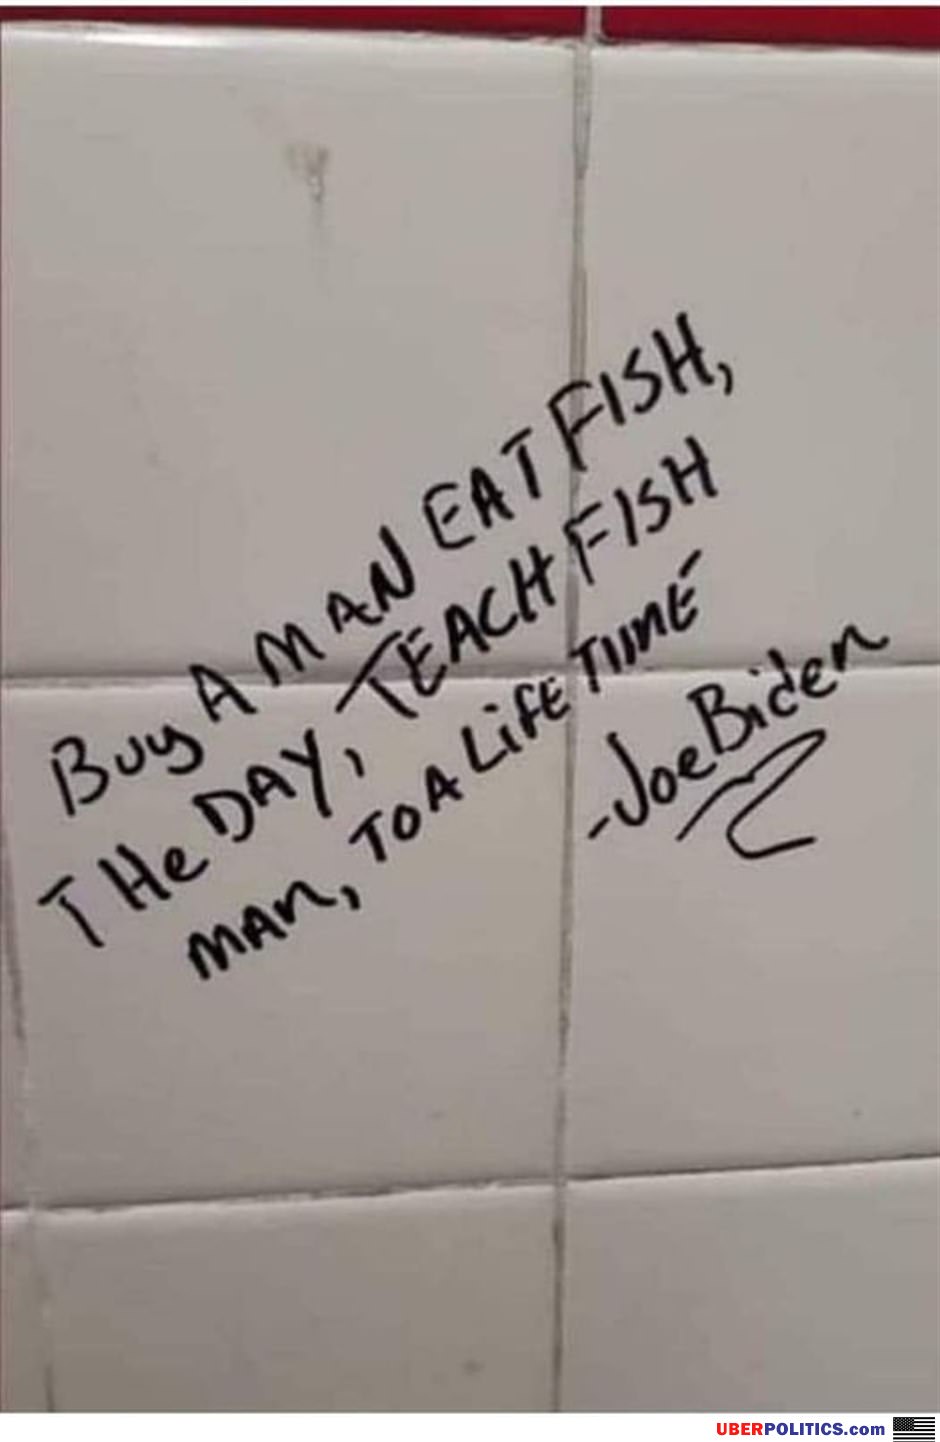 Buy A MAN EAT FISH,
THe DAY, TEACH FISH
MAn, TO A LiFE TIME
-Joe Biden
UBERPOLITICS.com